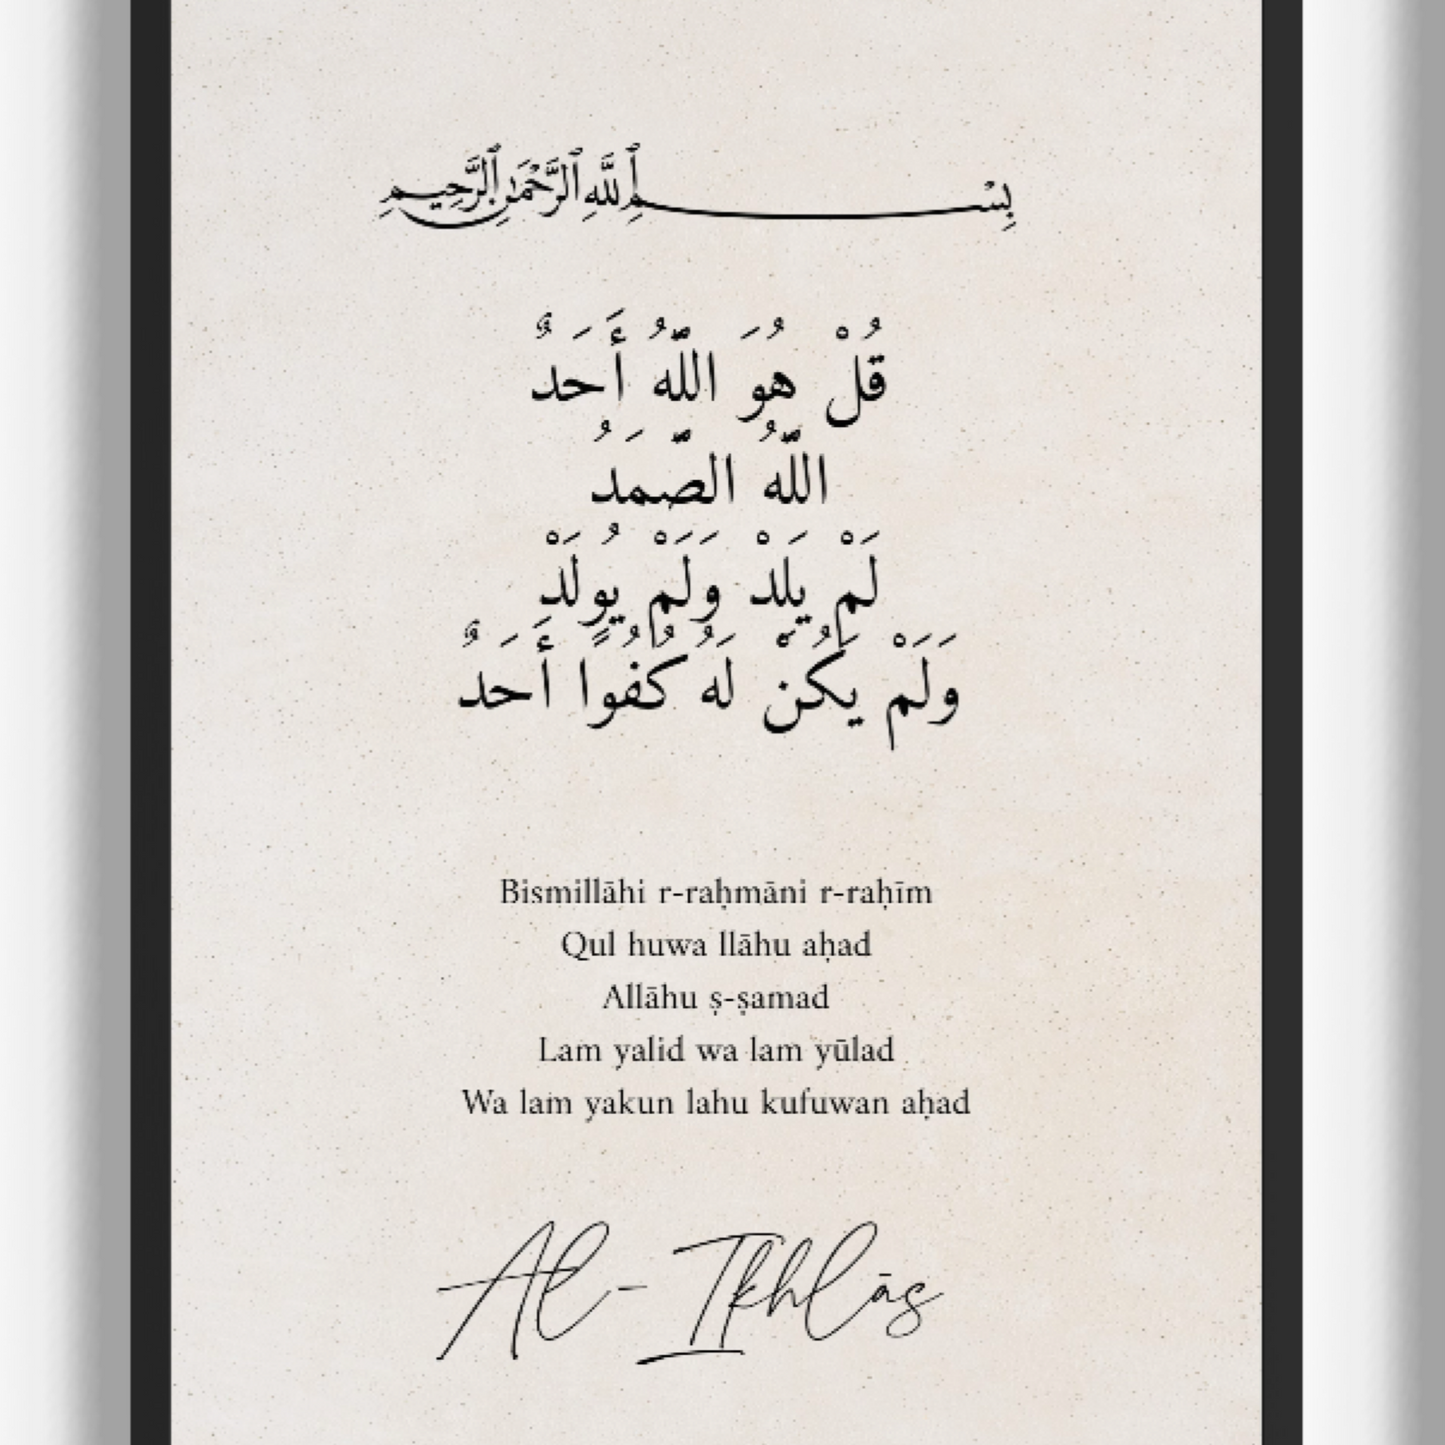 بِسْمِ ٱللَّهِ ٱلرَّحْمَٰنِ ٱلرَّحِيمِ
قُلْ هُوَ اللّهُ أَحَدٌ
اللّهُ الصّمَدُ
لَمْ يَلِدْ وَلَمْ يُولَدْ
وَلَمْ يَكُنْ لَهُ كُفُوًا أَحَدٌ
Bismillāhi r-raḥmāni r-raḥīm
Qul huwa llāhu aḥad
Allāhu ṣ-ṣamad
Lam yalid wa lam yūlad
Wa lam yakun lahu kufuwan aḥad
Al-Ikhlāṣ